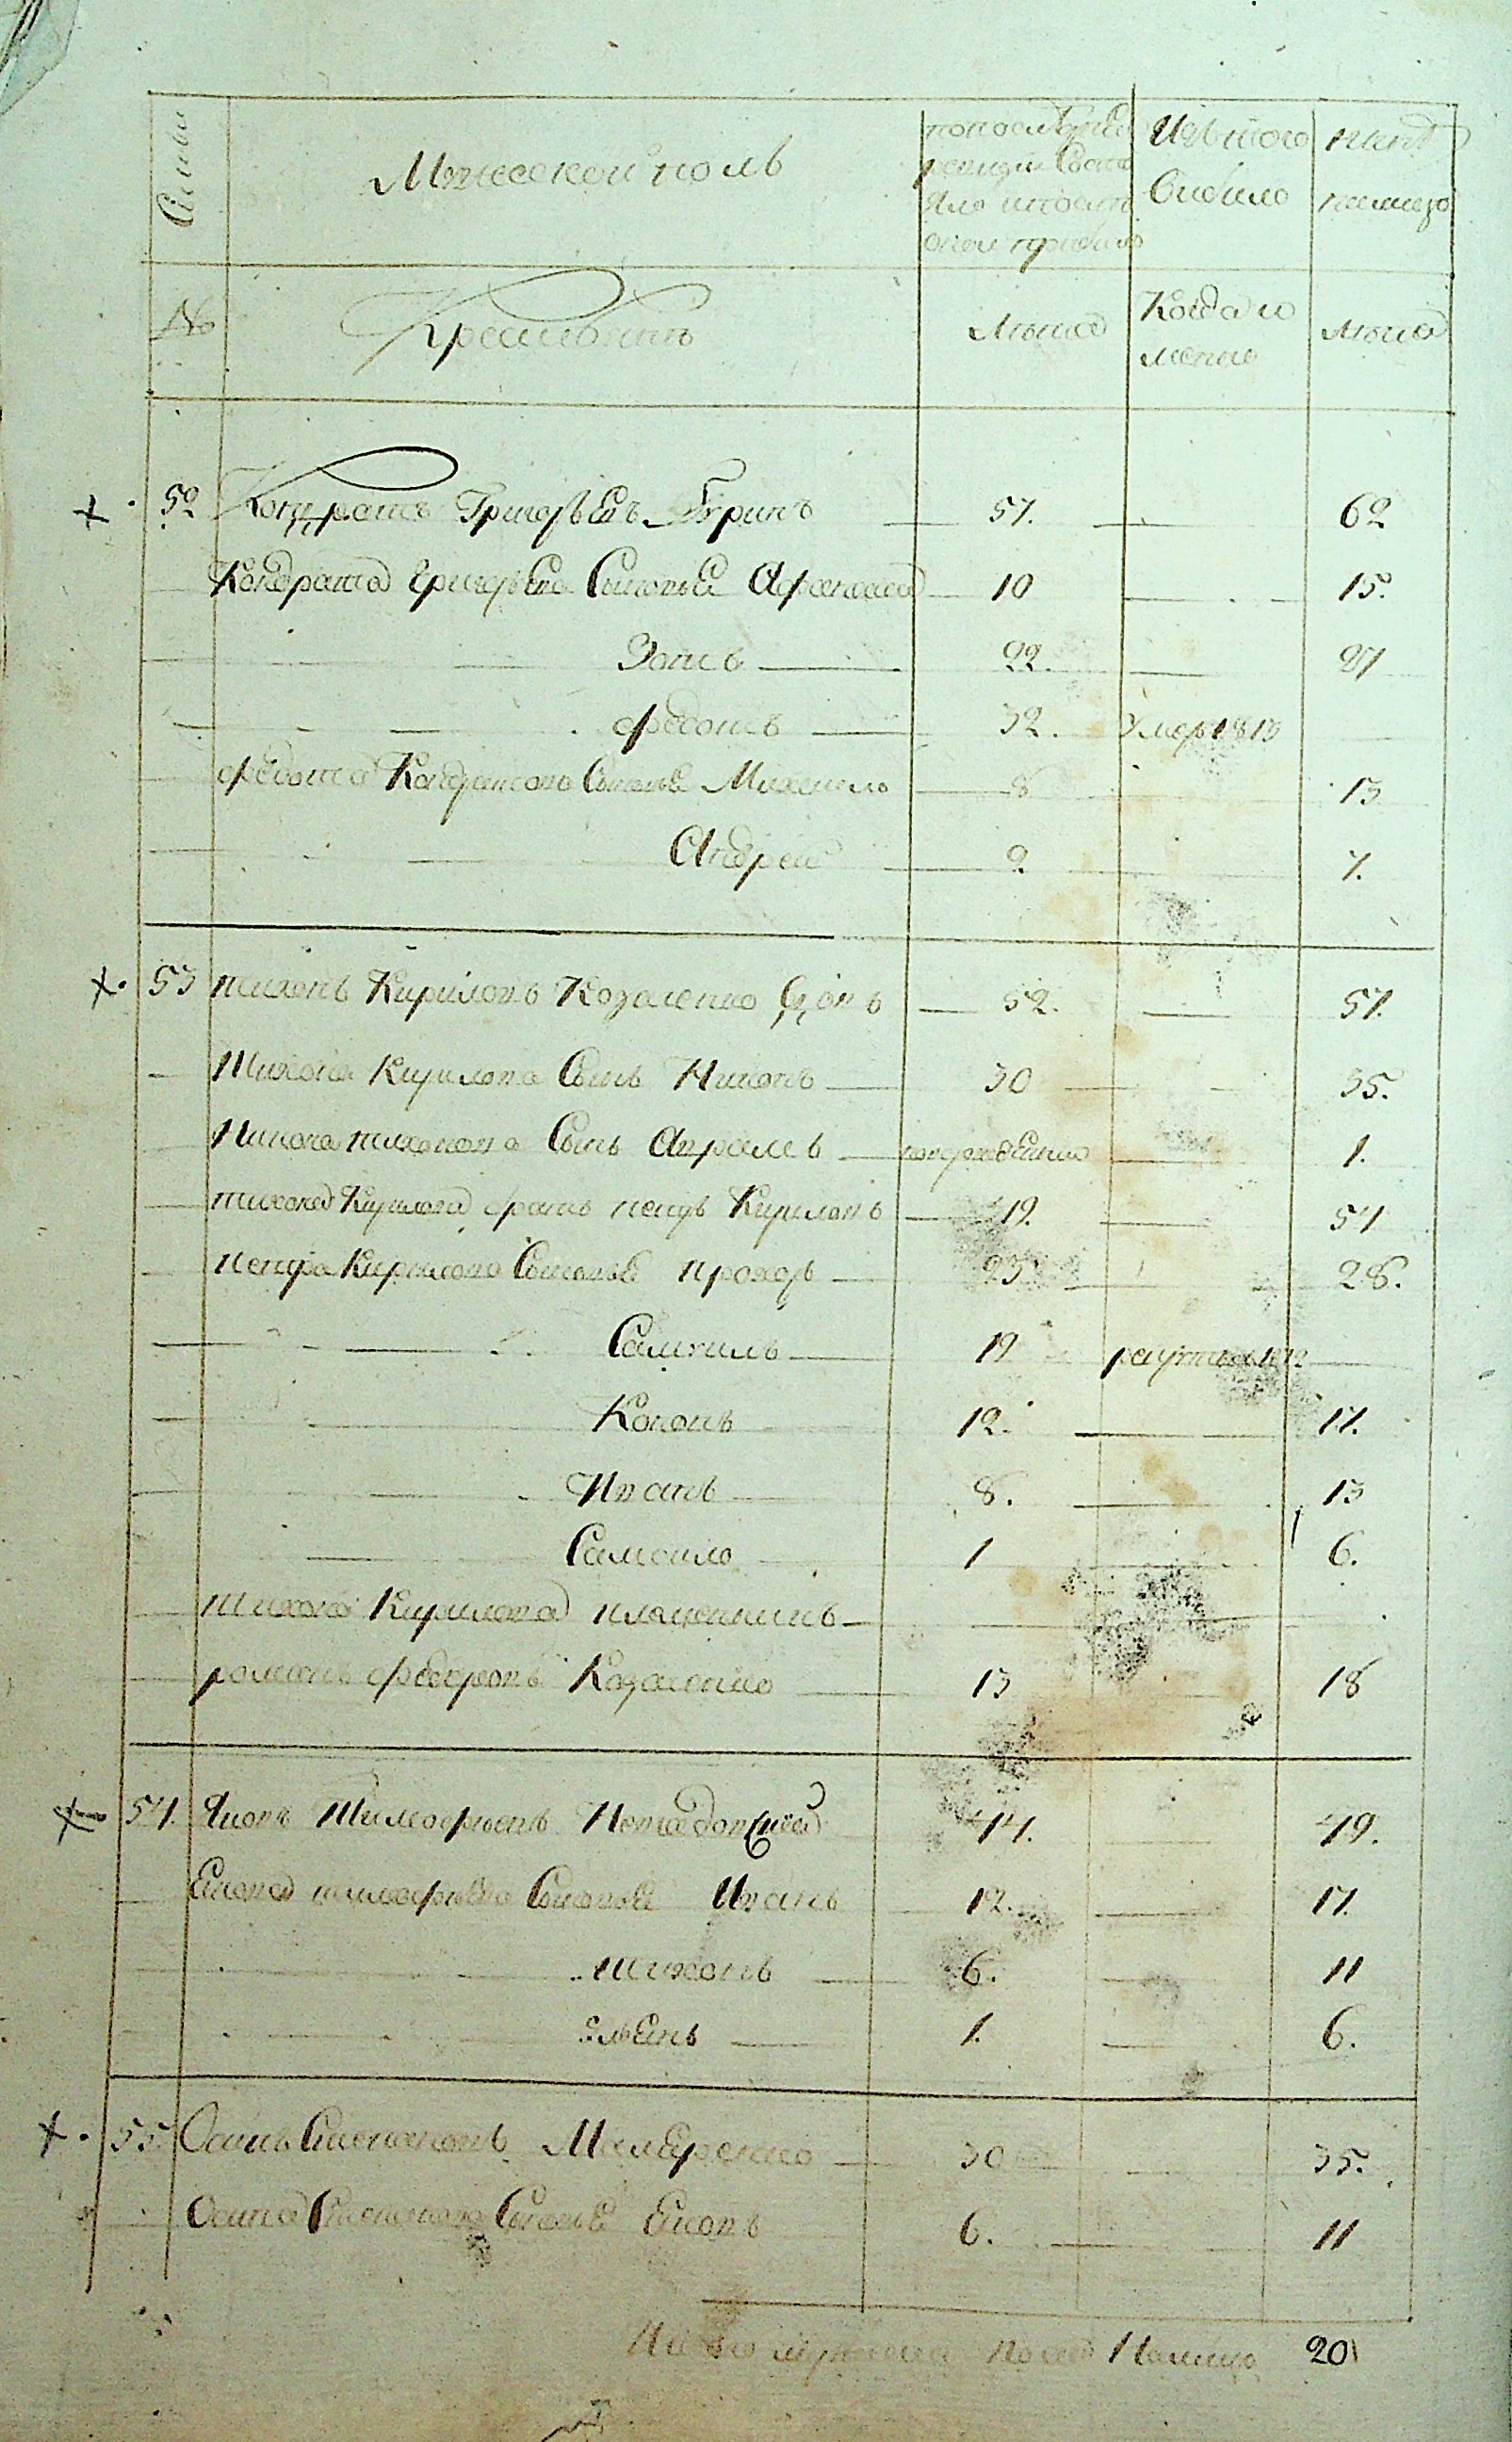 Семьи
Мужеской полъ
по последней ревизии состояло и после оной прибыло
Изъ того выбыло
ныне на лицо
№
Крестьянъ
лѣта
Когда именно
лѣта
52 Кондратъ Григорьевъ 57. 62
Кондрата Григорьева сыновья Афанасей 10 15.
Зотъ 22. 27
Федотъ 32. умеръ 1813
Федота Кондратова сыновья Михайло 8 13
Андрей 2. 7.
53 Тихонъ Кириловъ Козаченко 52. 57.
Тихона Кирилова сынъ Никонъ 30 35.
Никона Тихонова сынъ новорожденной 1.
Тихона Кирилова братъ Петръ Кириловъ 49. 54
Петра Кирилова сыновья Прохоръ 23 28.
Самуилъ 19 рекрутъ 1812
Кононъ 12. 17.
Иванъ 8. 13
Самойло 1 6.
Тихона Кирилова племянникъ
Романъ Федоровъ Козаченко 13 18
54. Яковъ Тимофѣевъ 44. 49.
Якова Тимофѣева сыновья Иванъ 12. 17.
Тихонъ 6. 11
1. 6.
55. Осипъ Степановъ 30 35.
Осипа Степанова сыновья Яковъ 6. 11
Итого мужеска пола на лицо 20